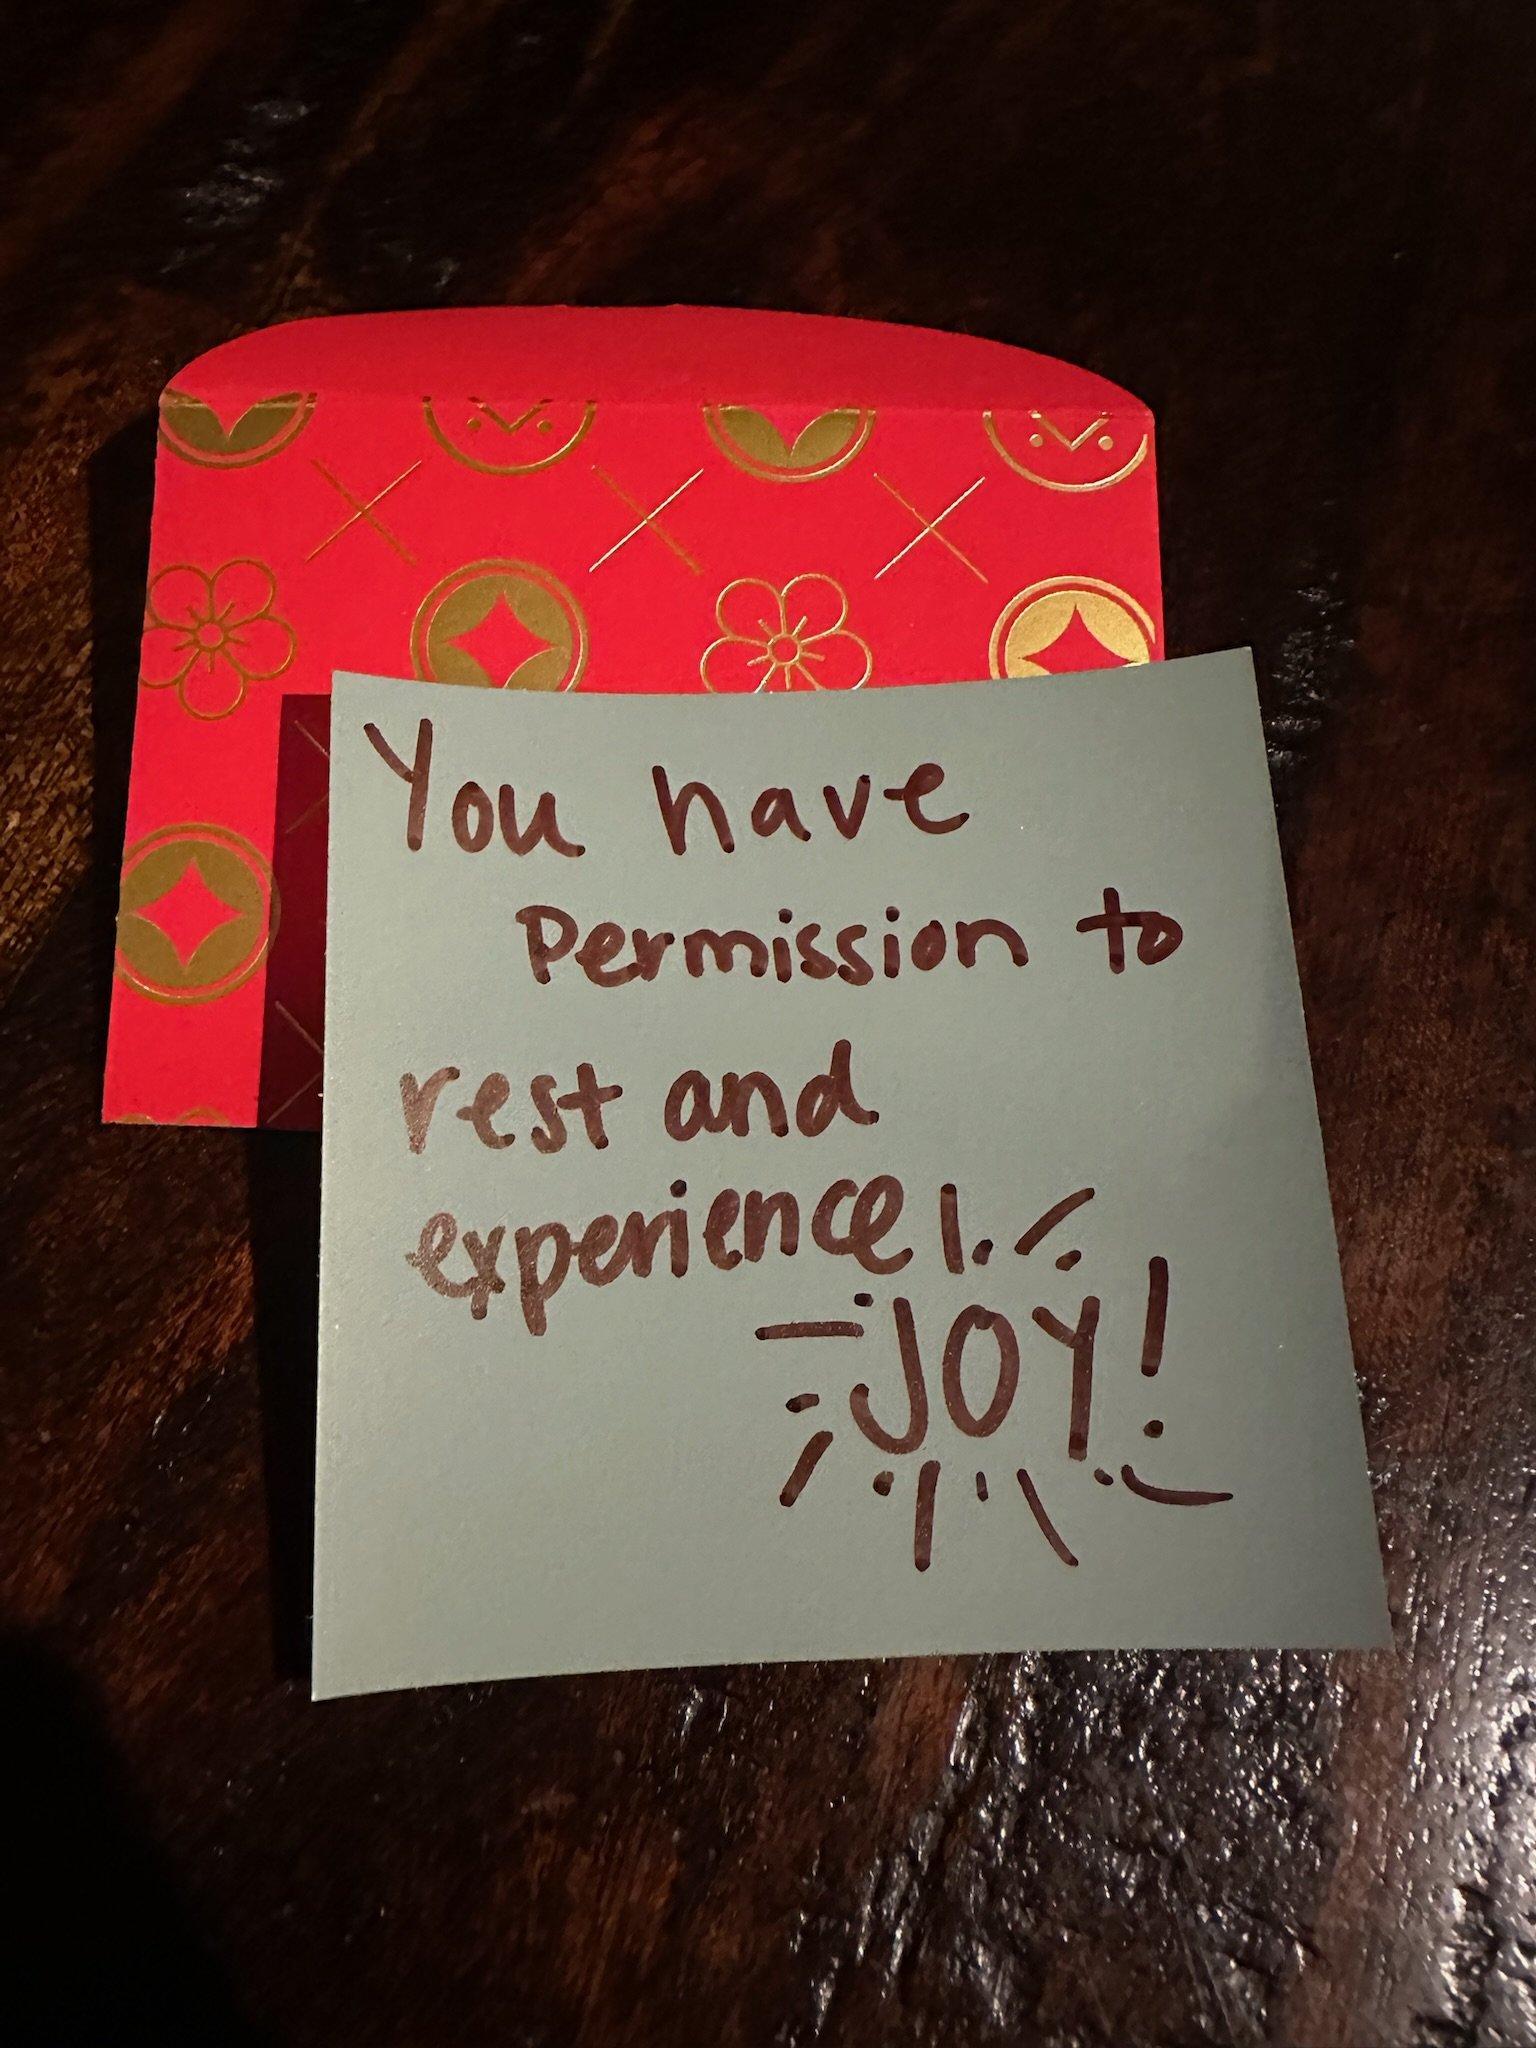 You have
Permission to
rest and
experience
JOY!